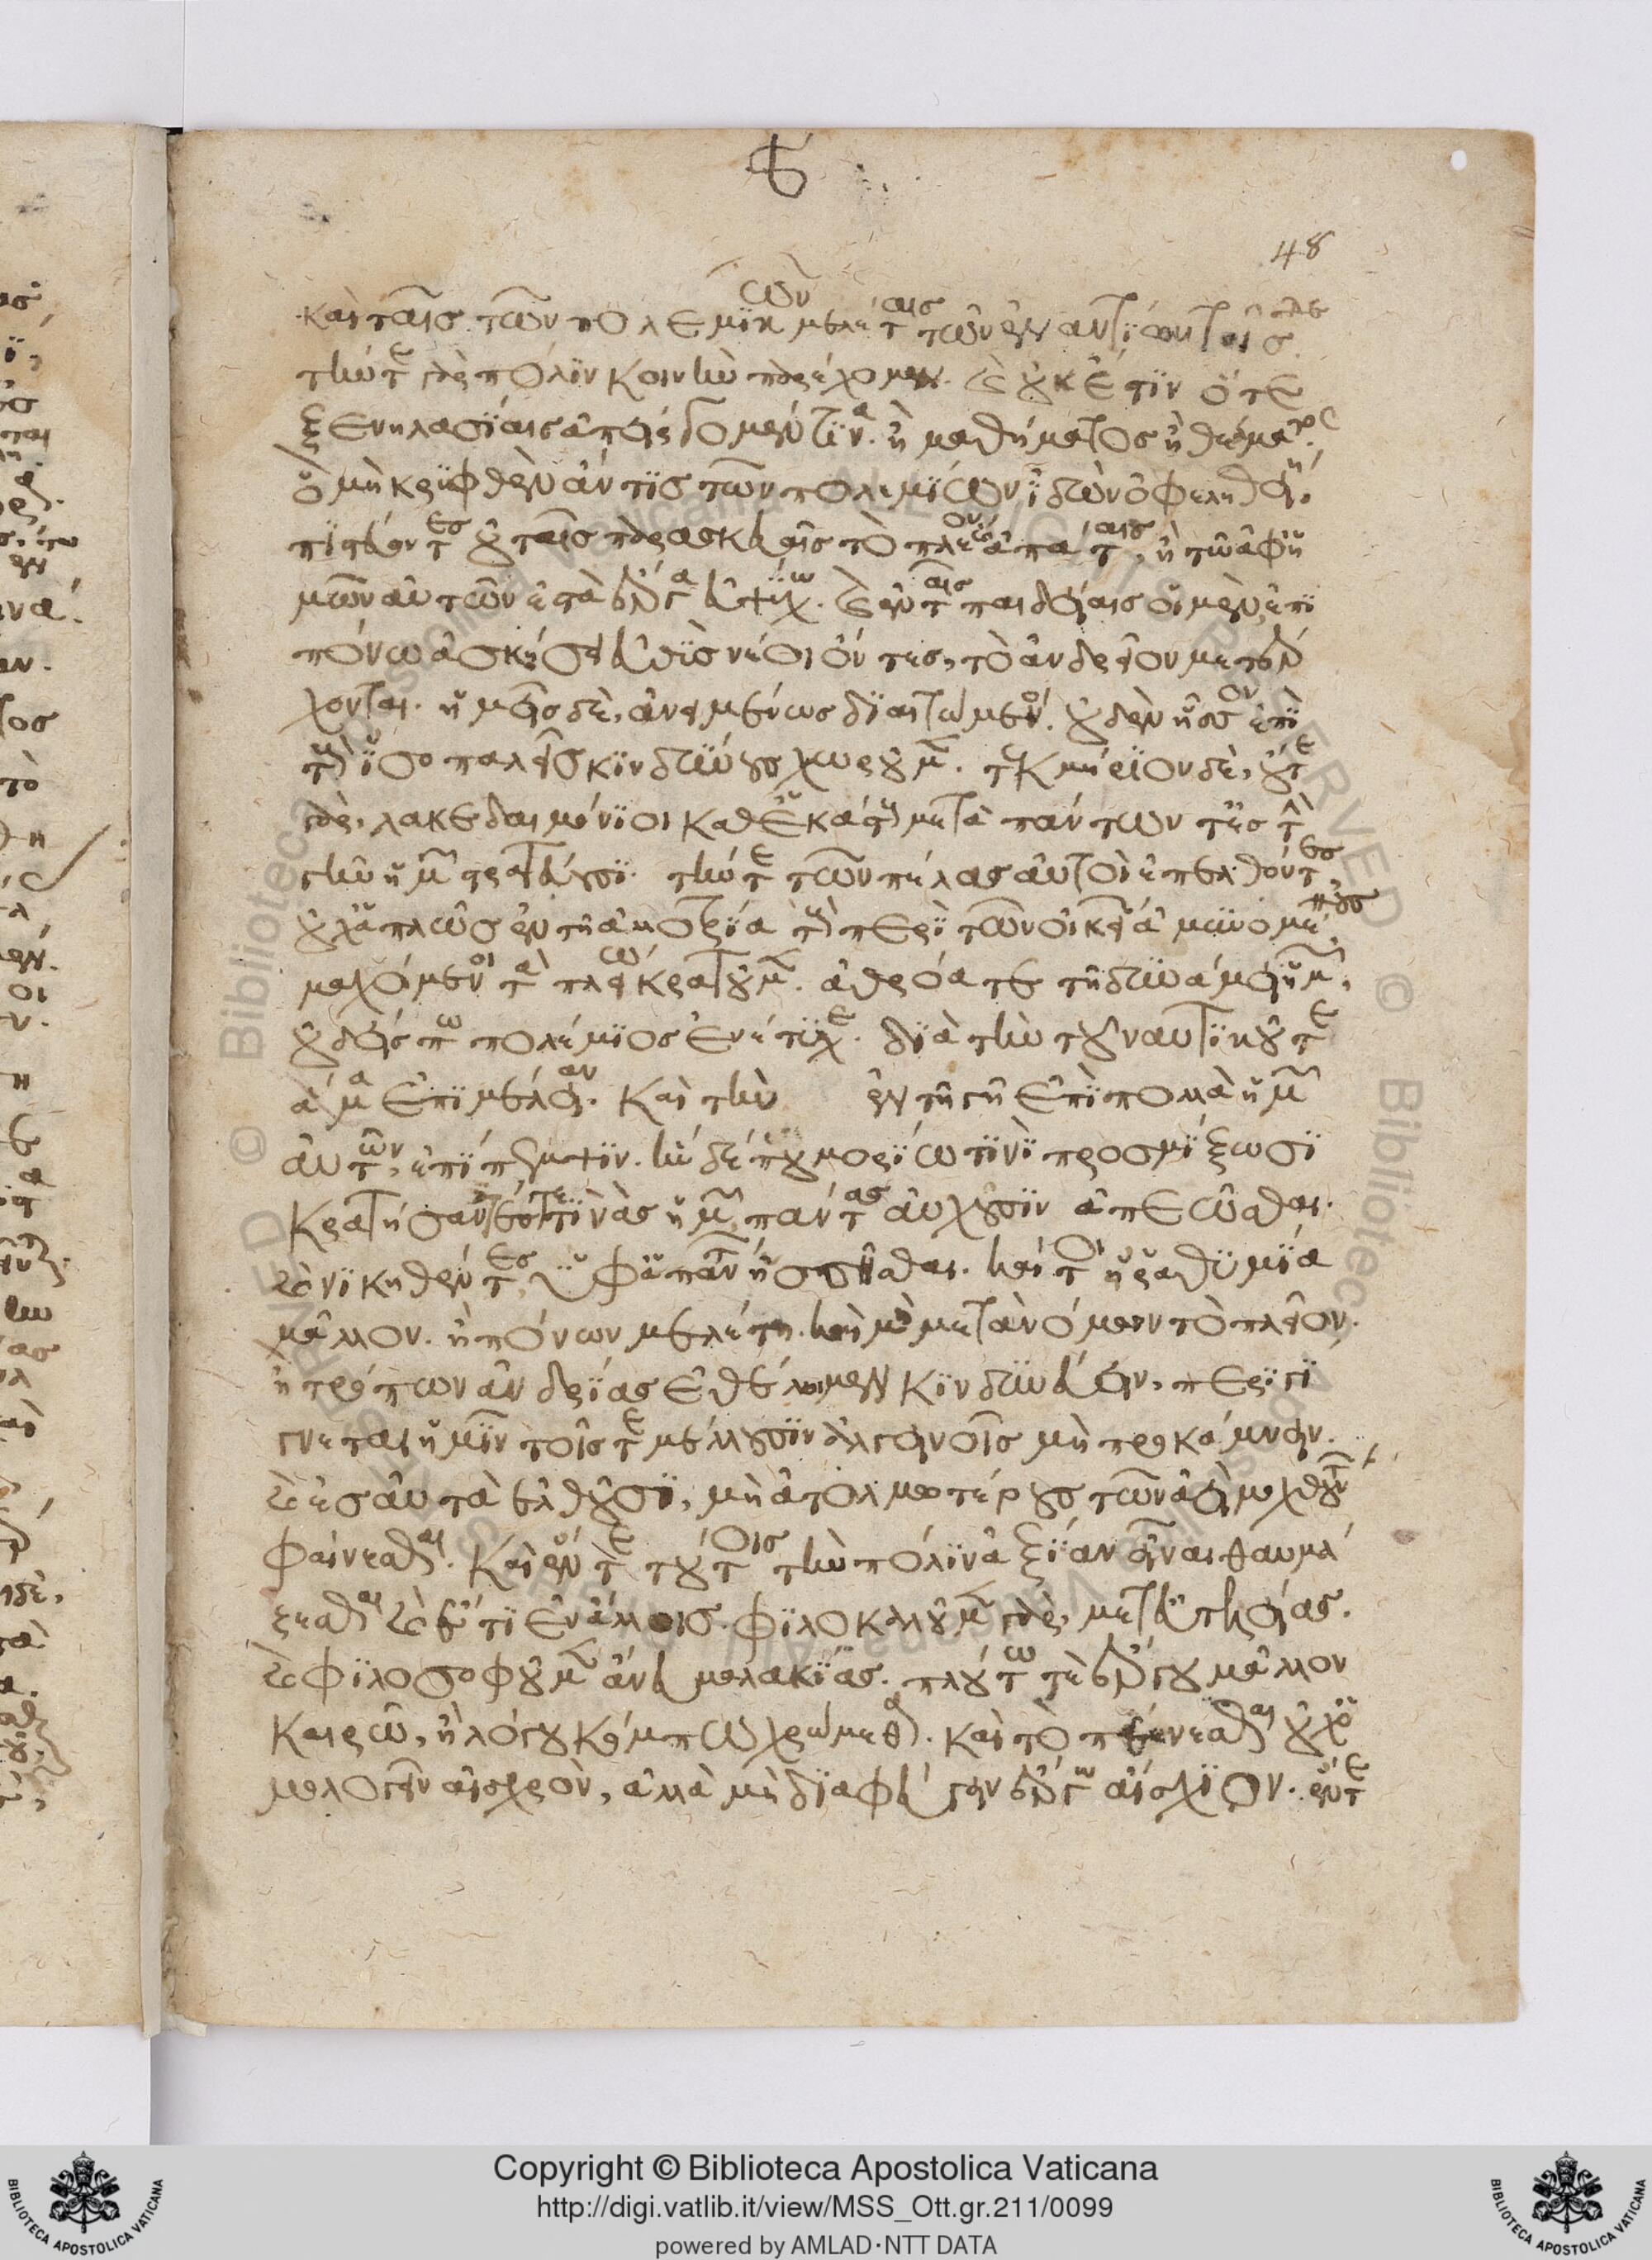 48
καὶ ταῖς τῶν πολεμικῶν μελέταις τῶν ἐναντίων τοῖσδε
τήν τε γὰρ πόλιν κοινὴν παρέχομεν. καὶ οὐκ ἔστιν ὅτε
ξενηλασίαις ἀπείργομέν τινα. ἢ μαθήματος ἢ θεάματος.
ὃ μὴ κρυφθὲν ἄν τις τῶν πολεμίων ἰδὼν ὠφεληθείη.
πιστεύοντες οὐ ταῖς παρασκευαῖς τὸ πλέον καὶ ἀπάταις, ἢ τῷ ἀφ' ἡ
μῶν αὐτῶν ἐς τὰ ἔργα εὐψύχῳ. καὶ ἐν ταῖς παιδείαις οἱ μὲν ἐπι
πόνῳ ἀσκήσει εὐθὺς νέοι ὄντες, τὸ ἀνδρεῖον μετέρ
χονται. ἡμεῖς δὲ, ἀνειμένως διαιτώμενοι. οὐδὲν ἧσσον ἐπὶ
τοὺς ἰσοπαλεῖς κινδύνους χωροῦμεν. τεκμήριον δὲ, οὔτε
γὰρ, λακεδαιμόνιοι καθ' ἑκάστους μετὰ πάντων δ' ἐς τὴν
γῆν ἡμῶν στρατεύουσι. τήν τε τῶν πέλας αὐτοὶ ἐπελθόντες
οὐ χαλεπῶς ἐν τῇ ἀλλοτρίᾳ τοὺς περὶ τῶν οἰκείων ἀμυνομένους
μαχόμενοι τὰ πλείω κρατοῦμεν. ἀθρόᾳ τε τῇ δυνάμει ἡμῶν,
οὐδείς πω πολέμιος ἐνέτυχε. διὰ τὴν τοῦ ναυτικοῦ τε
ἅμα ἐπιμέλειαν. καὶ τὴν ἐν τῇ γῇ ἐπὶ πολλὰ ἡμῶν
αὐτῶν, ἐπίπεμψιν. ἢν δέ που μορίῳ τινὶ προσμίξωσι
κρατήσαντές τέ τινας ἡμῶν πάντας αὐχοῦσιν ἀπεῶσθαι.
καὶ νικηθέντες, ὑφ' ἁπάντων ἡσσῆσθαι. καίτοι εἰ ῥαθυμίᾳ
μᾶλλον. ἢ πόνων μελέτῃ. καὶ μὴ μετὰ νόμων τὸ πλεῖον.
ἢ τρόπων ἀνδρίας ἐθέλοιμεν κινδυνεύειν, περιγί
γνεται ἡμῖν τοῖς τε μέλλουσιν ἀλγεινοῖς μὴ προκάμνειν.
καὶ ἐς αὐτὰ ἐλθοῦσι, μὴ ἀτολμοτέρους τῶν ἀεὶ μοχθούντων
φαίνεσθαι. καὶ ἔν τε τούτοις τὴν πόλιν ἀξίαν εἶναι θαυμά
ζεσθαι καὶ ἔτι ἐν ἄλλοις. φιλοκαλοῦμεν γὰρ, μετ' εὐτελείας.
καὶ φιλοσοφοῦμεν ἄνευ μαλακίας. πλούτῳ τὲ ἔργου μᾶλλον
καιρῷ, ἢ λόγου κόμπῳ χρώμεθα. καὶ τὸ πένεσθαι οὐχ ὁ
μολογεῖν αἰσχρὸν, ἀλλὰ μὴ διαφεύγειν ἔργῳ αἴσχιον. ἔν τε
Copyright © Biblioteca Apostolica Vaticana
http://digi.vatlib.it/view/MSS_Ott.gr.211/0099
powered by AMLAD·NTT DATA
BIBLIOTECA APOSTOLICA VATICANA
BIBLIOTECA APOSTOLICA VATICANA